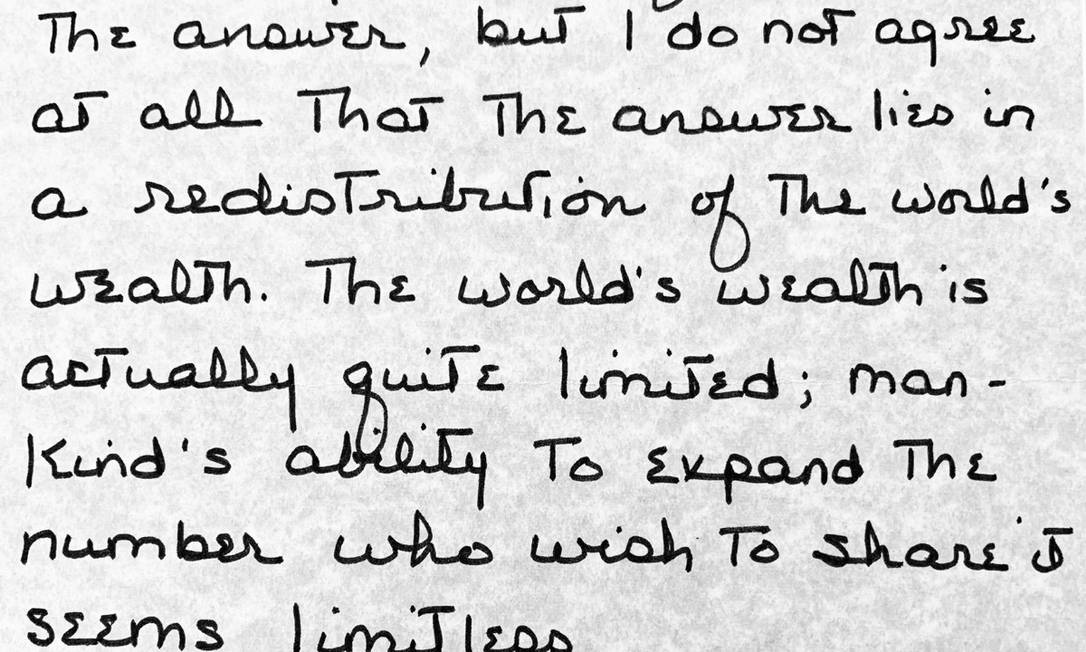 The answer, but I do not agree
at all that the answer lies in
a redistribution of the world's
wealth. The world's wealth is
actually quite limited; man-
kind's ability to expand the
number who wish to share it
seems limitless